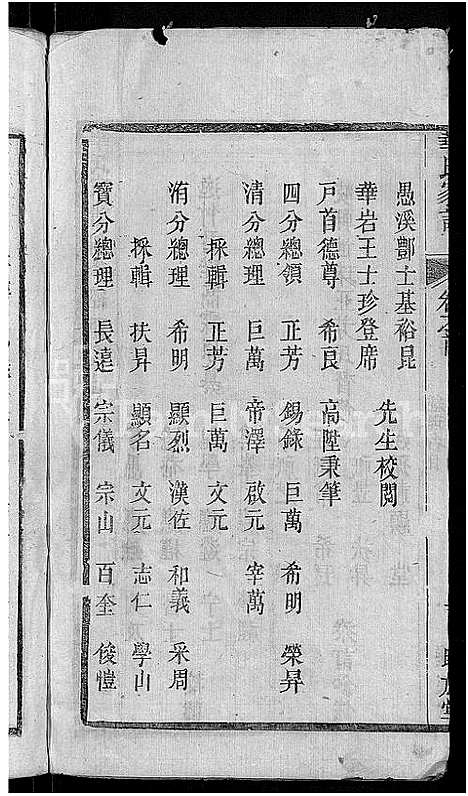 愚溪酆士基裕昆
華岩王士珍登席
先生校閱
戸首德尊 希良 高陞秉筆
四分總領 正芳 錫錄 巨萬 希明 榮昇
清分總理 巨萬 帝澤 啟元 宰萬
採輯 正芳 巨萬 文元
洧分總理 希明 顯烈 漢佐 和義 采周
採輯 扶昇 顯名 文元 志仁 學山
寳分總理 長遠 宗儀 宗山 百奎 俊愷